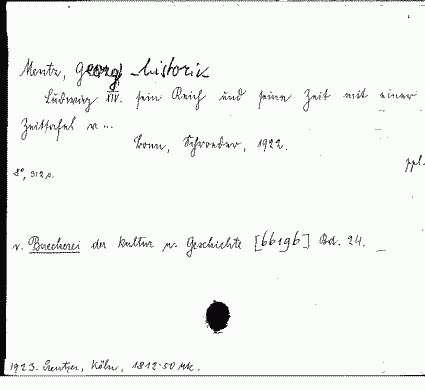 Mentz, Georg, historik
Ludwig XIV. sein Reich und seine Zeit mit einer
Zeittafel u...
Bonn, Schroeder, 1922.
ppl.
8°, 312 s.
v. Buecherei der Kultur u. Geschichte [66196] Bd. 24.
1923. Rentzer, Köln, 1812·50 Mk.